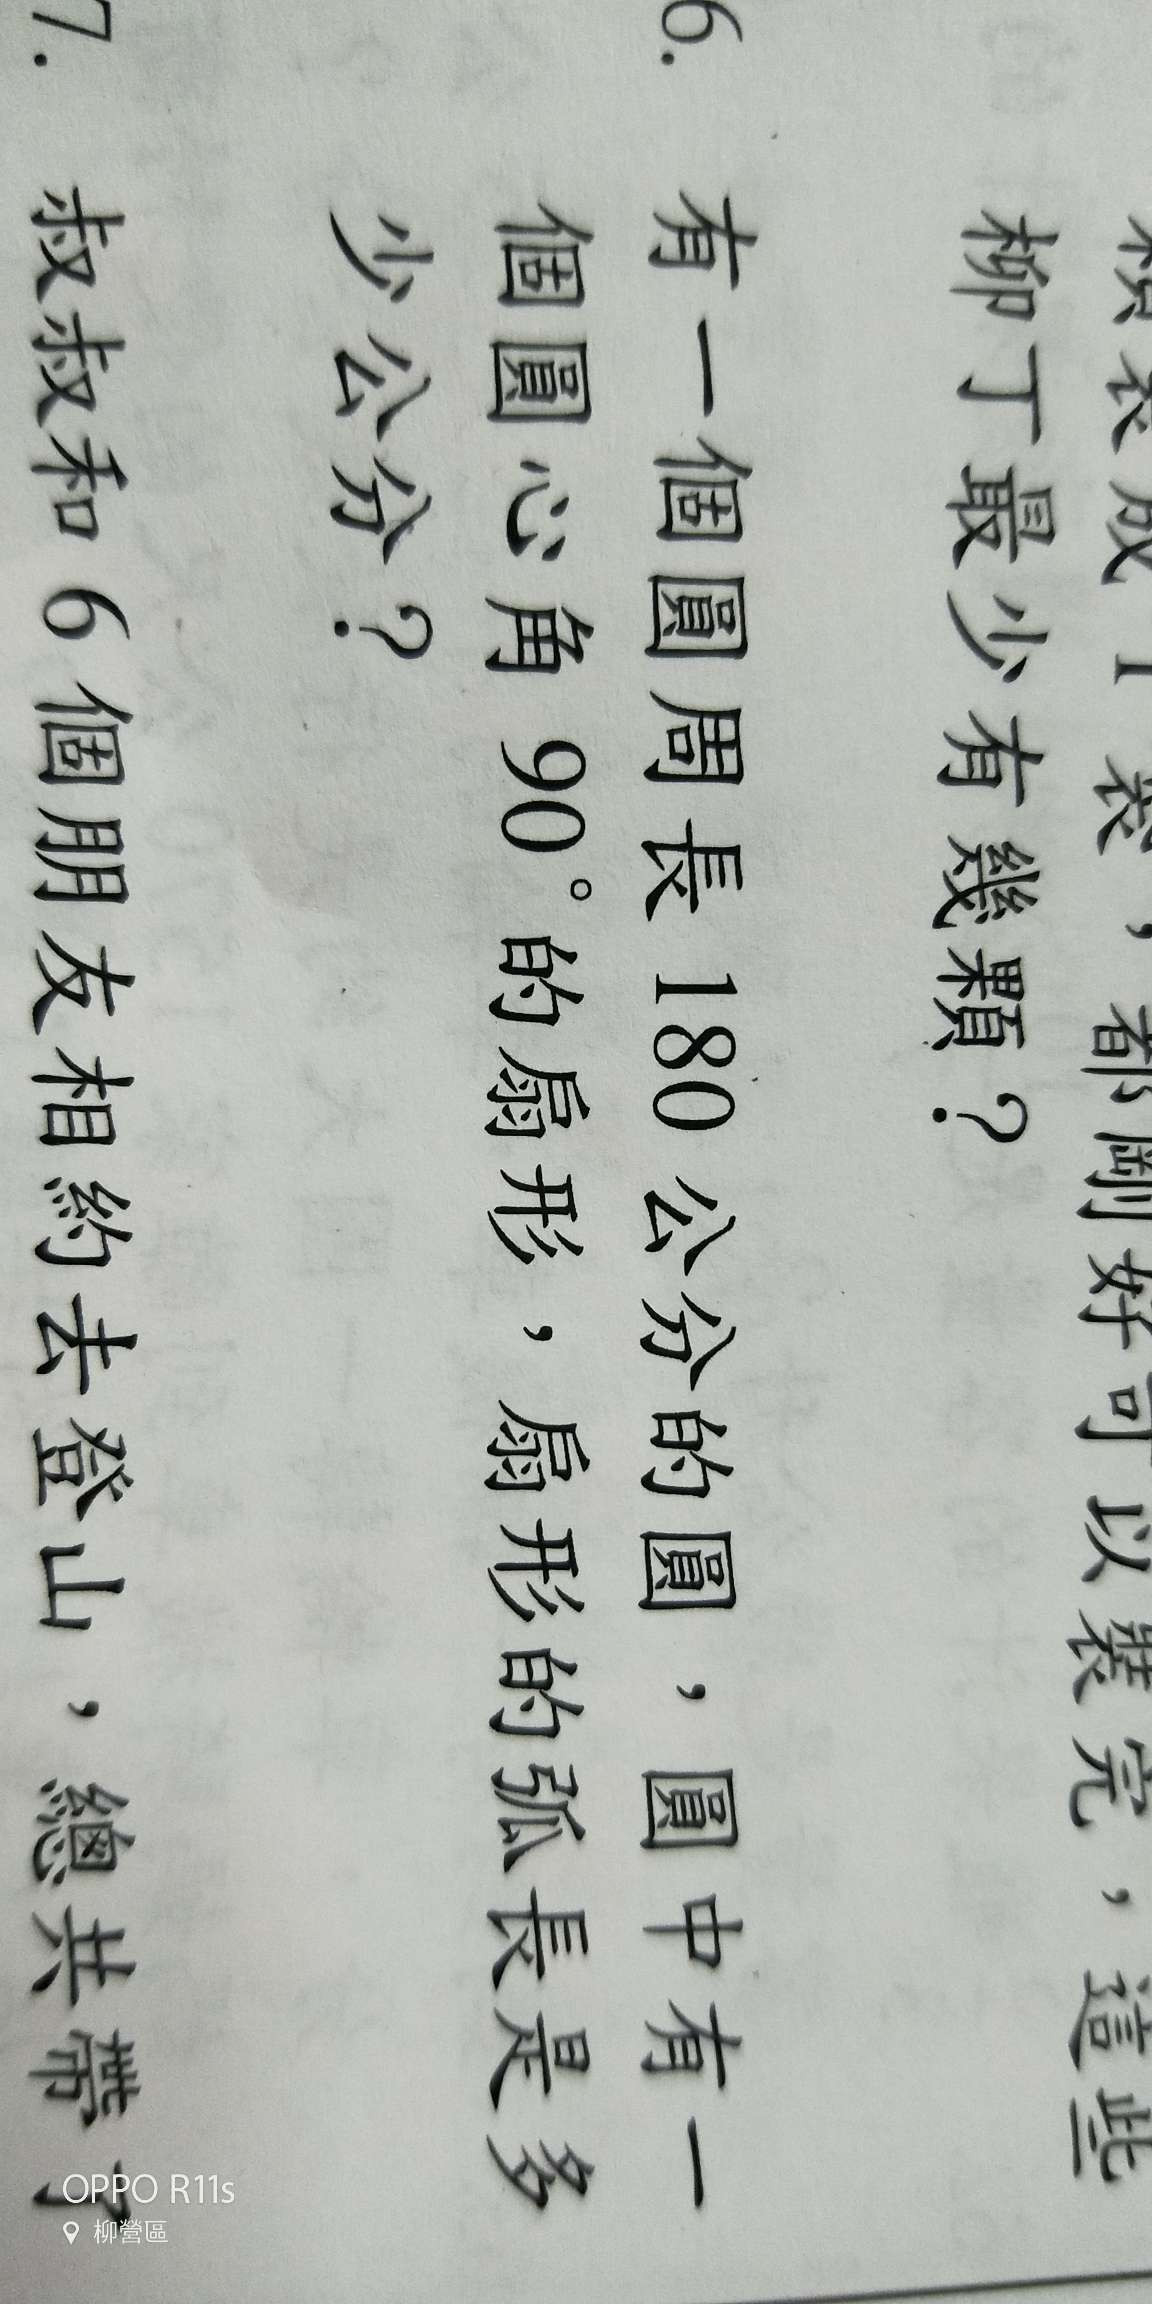 積裝成1袋，都剛好可以裝完，這些
柳丁最少有幾顆？
6. 有一個圓周長180公分的圓，圓中有一
個圓心角90°的扇形，扇形的弧長是多
少公分？
7. 叔叔和6個朋友相約去登山，總共帶了
OPPO R11s
柳營區